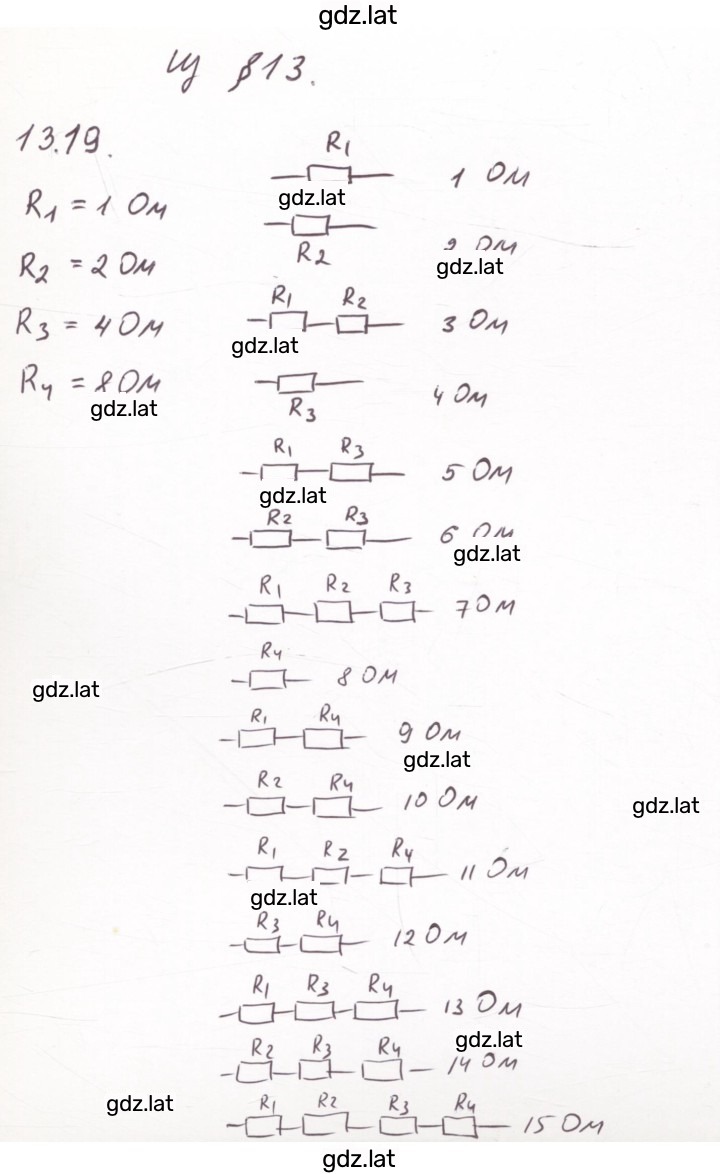 gdz.lat
§13.
13.19.
R1 = 1 Ом
R2 = 2 Ом
R3 = 4 Ом
R4 = 8 Ом
gdz.lat
R1
1 Ом
gdz.lat
R2
2 Ом
gdz.lat
R1 R2
3 Ом
gdz.lat
R3
4 Ом
R1 R3
5 Ом
gdz.lat
R2 R3
6 Ом
gdz.lat
R1 R2 R3
7 Ом
R4
8 Ом
gdz.lat
R1 R4
9 Ом
gdz.lat
R2 R4
10 Ом
gdz.lat
R1 R2 R4
11 Ом
gdz.lat
R3 R4
12 Ом
R1 R3 R4
13 Ом
gdz.lat
R2 R3 R4
14 Ом
gdz.lat
R1 R2 R3 R4
15 Ом
gdz.lat